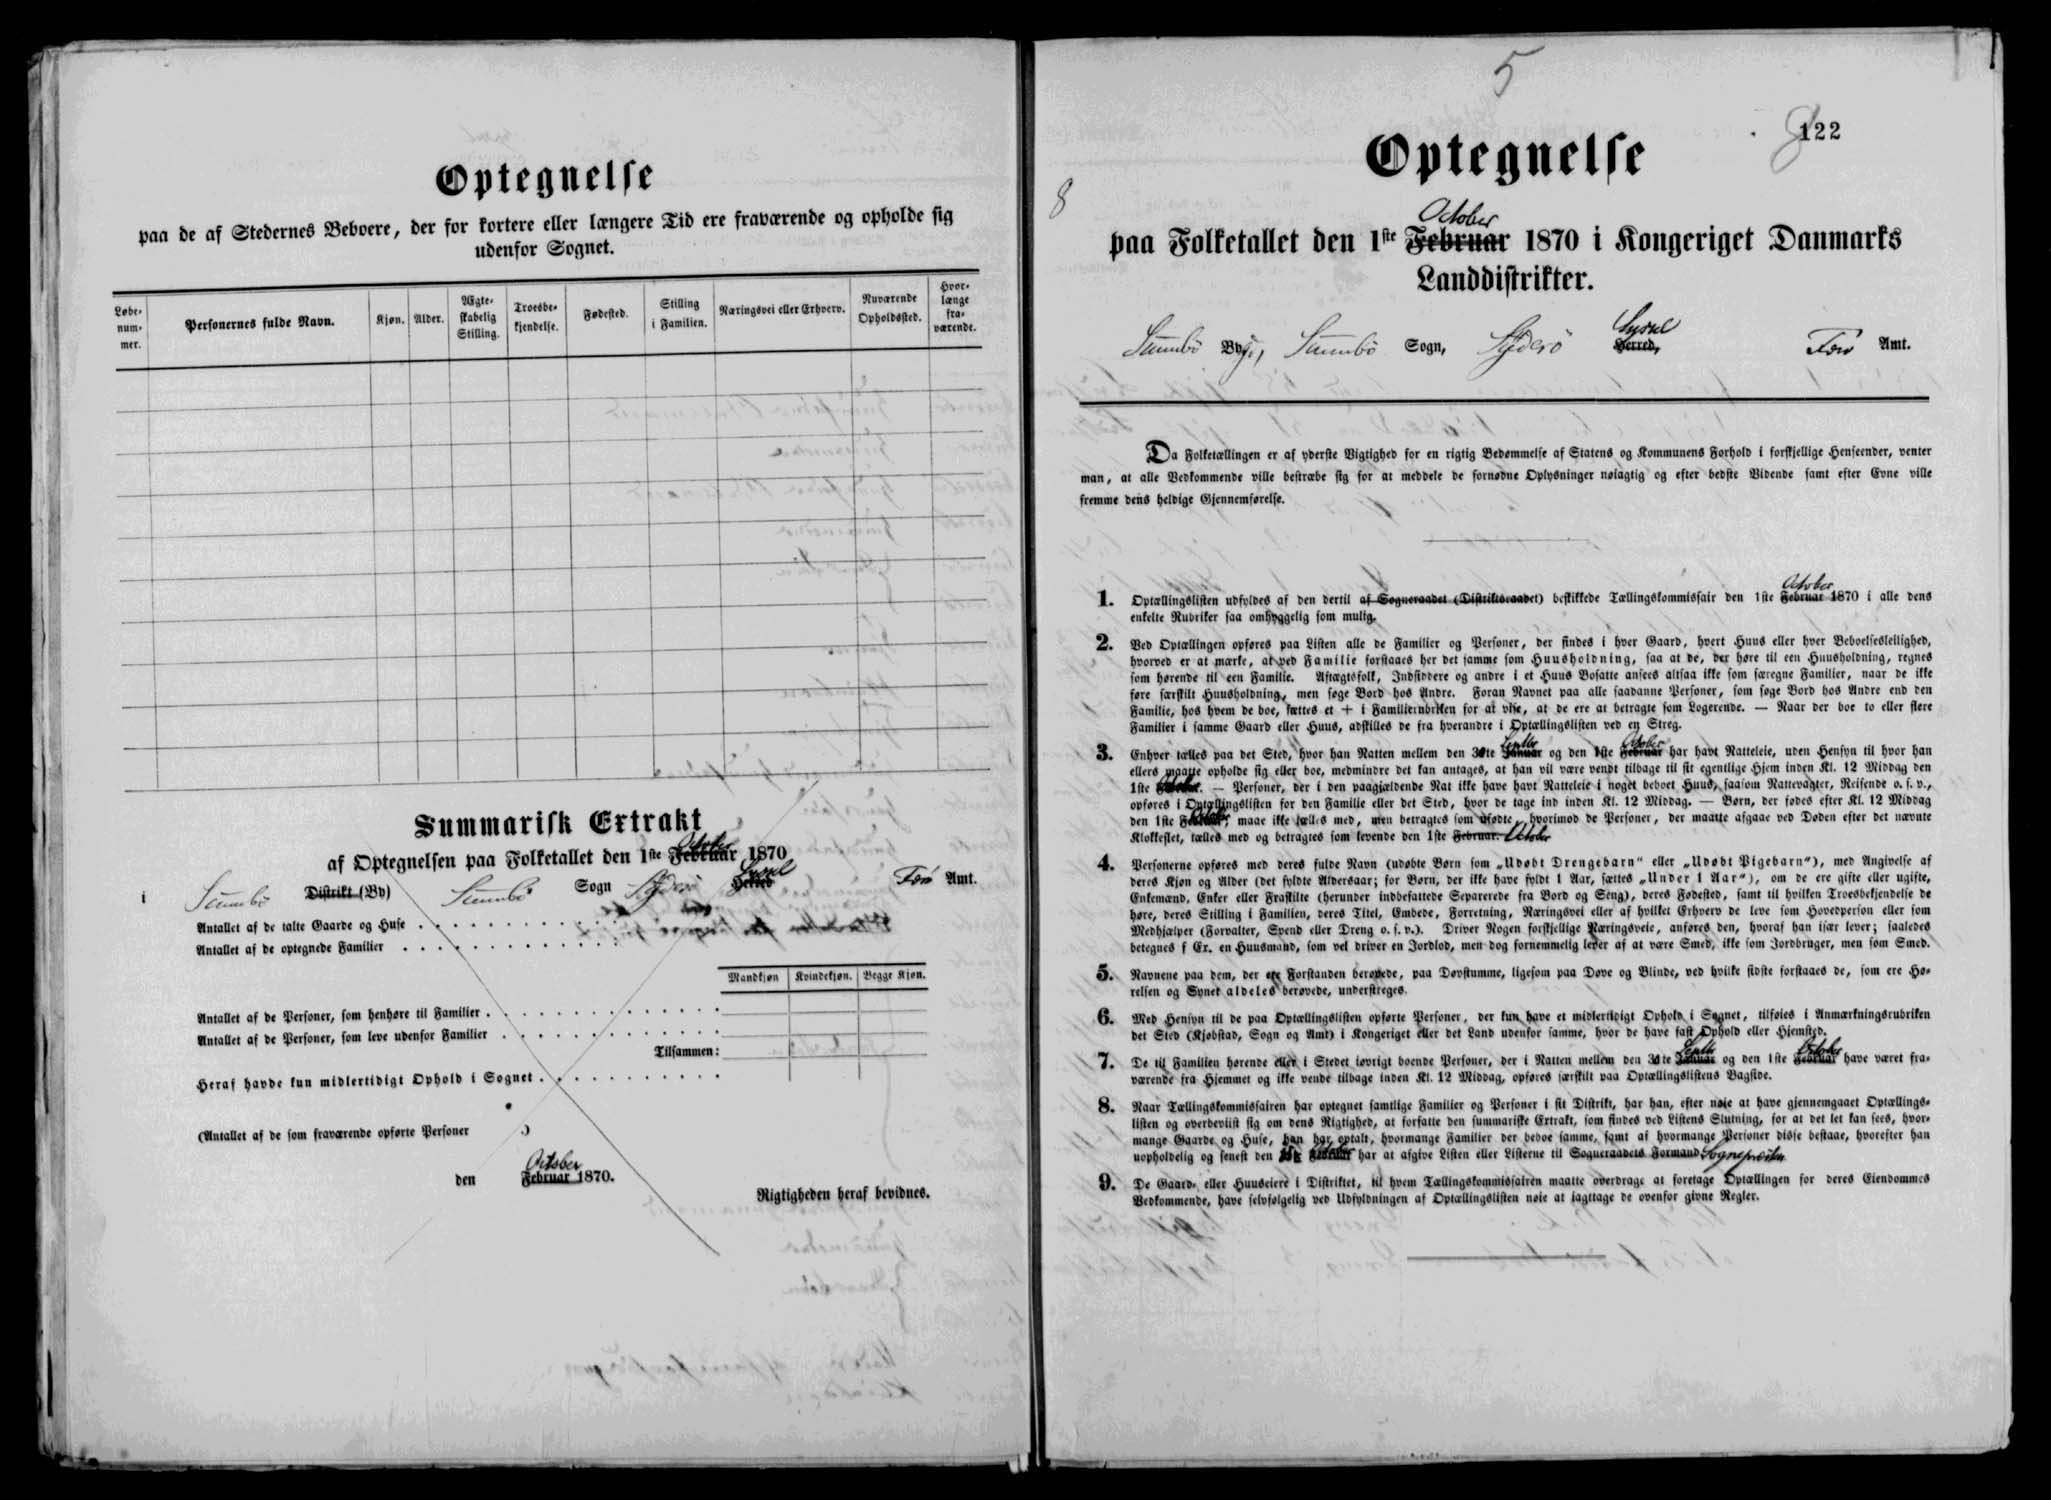 Optegnelse
paa de af Stedernes Beboere, der for kortere eller længere Tid ere fraværende og opholde sig
udenfor Sognet.
Løbe-
num-
mer.
Personernes fulde Navn.
Kjøn.
Alder.
Ægte-
skabelig
Stilling.
Troesbe-
kjendelse.
Fødested.
Stilling
i Familien.
Næringsvei eller Erhverv.
Nuværende
Opholdssted.
Hvor-
længe
fra-
værende.
Summarisk Extrakt
October
af Optegnelsen paa Folketallet den 1ste Februar 1870
Sysel
i Sumbø Distrikt (By) Sumbø Sogn Syderø Herred Færø Amt.
Antallet af de talte Gaarde og Huse
Antallet af de optegnede Familier
Mandkjøn Kvindekjøn. Begge Kjøn.
Antallet af de Personer, som henhøre til Familier
Antallet af de Personer, som leve udenfor Familier
Tilsammen:
Heraf havde kun midlertidigt Ophold i Sognet
(Antallet af de som fraværende opførte Personer )
October
den Februar 1870.
Rigtigheden heraf bevidnes.
5
8
122
8
Optegnelse
October
paa Folketallet den 1ste Februar 1870 i Kongeriget Danmarks
Landdistrikter.
Sysel
Sumbø Bygd, Sumbø Sogn, Syderø Herred, Færø Amt.
Da Folketællingen er af yderste Vigtighed for en rigtig Bedømmelse af Statens og Kommunens Forhold i forskjellige Henseender, venter
man, at alle Vedkommende ville bestræbe sig for at meddele de fornødne Oplysninger nøiagtig og efter bedste Vidende samt efter Evne ville
fremme dens heldige Gjennemførelse.
October
1. Optællingslisten udfyldes af den dertil af Sogneraadet (Distriktsraadet) beskikkede Tællingskommissair den 1ste Februar 1870 i alle dens
enkelte Rubriker saa omhyggelig som mulig.
2. Ved Optællingen opføres paa Listen alle de Familier og Personer, der findes i hver Gaard, hvert Huus eller hver Beboelsesleilighed,
hvorved er at mærke, at ved Familie forstaaes her det samme som Huusholdning, saa at de, der høre til een Huusholdning, regnes
som hørende til een Familie. Aftægtsfolk, Indsiddere og andre i et Huus Bosatte ansees altsaa ikke som særegne Familier, naar de ikke
føre særskilt Huusholdning, men søge Bord hos Andre. Foran Navnet paa alle saadanne Personer, som søge Bord hos Andre end den
Familie, hos hvem de boe, sættes et + i Familierubriken for at vise, at de ere at betragte som Logerende. — Naar der boe to eller flere
Familier i samme Gaard eller Huus, adskilles de fra hverandre i Optællingslisten ved en Streg.
Septbr October
3. Enhver tælles paa det Sted, hvor han Natten mellem den 30te Januar og den 1ste Februar har havt Natteleie, uden Hensyn til hvor han
ellers maatte opholde sig eller boe, medmindre det kan antages, at han vil være vendt tilbage til sit egentlige Hjem inden Kl. 12 Middag den
1ste October. — Personer, der i den paagjældende Nat ikke have havt Natteleie i noget beboet Huus, saasom Nattevagter, Reisende o. s. v.,
opføres i Optællingslisten for den Familie eller det Sted, hvor de tage ind inden Kl. 12 Middag. — Børn, der fødes efter Kl. 12 Middag
den 1ste October, maae ikke tælles med, men betragtes som ufødte, hvorimod de Personer, der maatte afgaae ved Døden efter det nævnte
Klokkeslet, tælles med og betragtes som levende den 1ste Februar. October
4. Personerne opføres med deres fulde Navn (udøbte Børn som „Udøbt Drengebarn" eller „Udøbt Pigebarn"), med Angivelse af
deres Kjøn og Alder (det fyldte Aldersaar; for Børn, der ikke have fyldt 1 Aar, sættes „Under 1 Aar"), om de ere gifte eller ugifte,
Enkemænd, Enker eller Fraskilte (herunder indbefattede Separerede fra Bord og Seng), deres Fødested, samt til hvilken Troesbekjendelse de
høre, deres Stilling i Familien, deres Titel, Embede, Forretning, Næringsvei eller af hvilket Erhverv de leve som Hovedperson eller som
Medhjælper (Forvalter, Svend eller Dreng o. s. v.). Driver Nogen forskjellige Næringsveie, anføres den, hvoraf han især lever; saaledes
betegnes f Ex. en Huusmand, som vel driver en Jordlod, men dog fornemmelig lever af at være Smed, ikke som Jordbruger, men som Smed.
5. Navnene paa dem, der ere Forstanden berøvede, paa Døvstumme, ligesom paa Døve og Blinde, ved hvilke sidste forstaaes de, som ere Hø-
relsen og Synet aldeles berøvede, understreges.
6. Med Hensyn til de paa Optællingslisten opførte Personer, der kun have et midlertidigt Ophold i Sognet, tilføies i Anmærkningsrubriken
det Sted (Kjøbstad, Sogn og Amt) i Kongeriget eller det Land udenfor samme, hvor de have fast Ophold eller Hjemsted.
Septbr October
7. De til Familien hørende eller i Stedet iøvrigt boende Personer, der i Natten mellem den 30te Januar og den 1ste Februar have været fra-
værende fra Hjemmet og ikke vende tilbage inden Kl. 12 Middag, opføres særskilt paa Optællingslistens Bagside.
8. Naar Tællingskommissairen har optegnet samtlige Familier og Personer i sit Distrikt, har han, efter nøie at have gjennemgaaet Optællings-
listen og overbeviist sig om dens Rigtighed, at forfatte den summariske Extrakt, som findes ved Listens Slutning, for at det let kan sees, hvor-
mange Gaarde og Huse, han har optalt, hvormange Familier der beboe samme, samt af hvormange Personer disse bestaae, hvorefter han
uopholdelig og senest den October har at afgive Listen eller Listerne til Sogneraadets Formand. Sognepræsten
9. De Gaard- eller Huuseiere i Distriktet, til hvem Tællingskommissairen maatte overdrage at foretage Optællingen for deres Eiendommes
Vedkommende, have selvfølgelig ved Udfyldningen af Optællingslisten nøie at iagttage de ovenfor givne Regler.